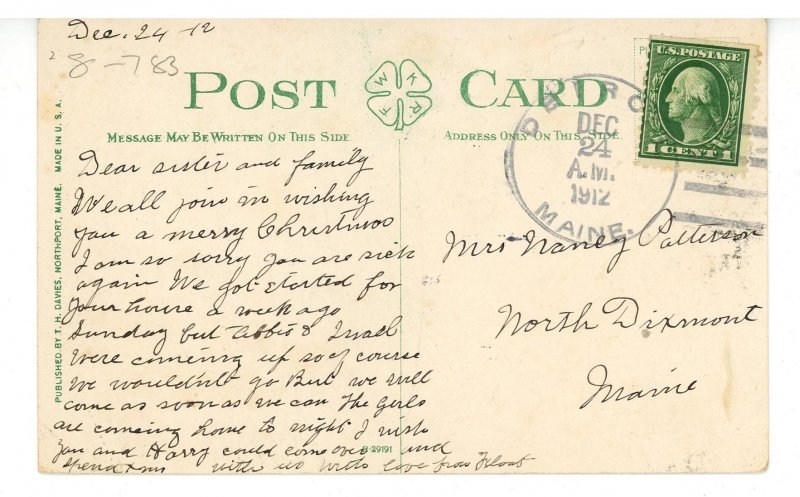 Dec. 24 -12
8-783
POST CARD
F W K R
MESSAGE MAY BE WRITTEN ON THIS SIDE
ADDRESS ONLY ON THIS SIDE
U.S. POSTAGE
1 CENT 1
DETRO
DEC
24
A.M.
1912
MAINE.
PUBLISHED BY T. H. DAVIES, NORTHPORT, MAINE. MADE IN U. S. A.
Dear sister and family
We all join in wishing
you a merry Christmas
I am so sorry you are sick
again We got started for
your house a week ago
Sunday but Abbie &
were comeing up so of course
we wouldn't go But we will
come as soon as we can The Girls
are comeing home to night I wish
you and Harry could come over and
spend Xmas with us with love from
B-29191
Mrs Nancy Patterson
North Dixmont
Maine